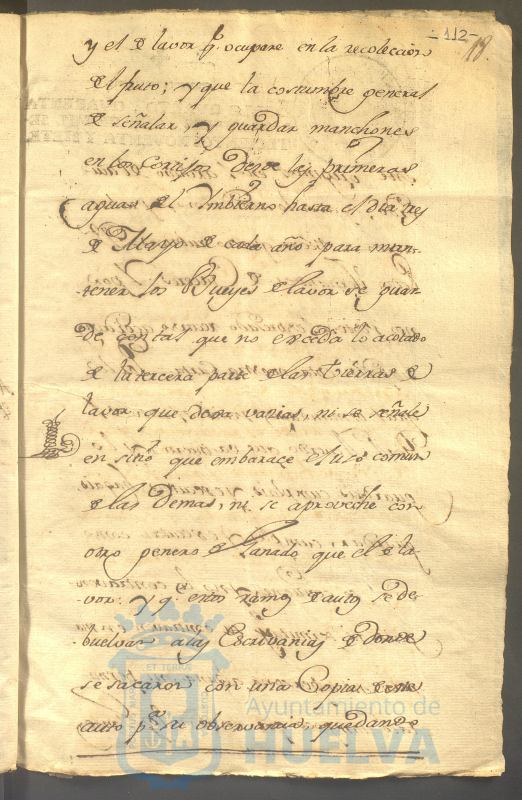 -112-
18.
y el de lavor q. ocupare en la recoleccion
del fruto; y que la costumbre general
de señalar, y guardar manchones
en los Cortijos desde las primeras
aguas del Imbierno hasta el dia tres
de Mayo de cada año para man-
tener los Bueyes de lavor se guar-
de, con tal que no exceda lo acotado
de la tercera parte de las tierras de
lavor que dexa varias, ni se señale
en sitio que embarace el uso comun
de las demas, ni se aproveche con
otro genero de Ganado que el de la-
vor. y q. estos ramos de autos se de-
buelvan a las Escrivanias de donde
se sacaron con una Copia de este
auto pa. su observancia, quedando
Ayuntamiento de
HUELVA